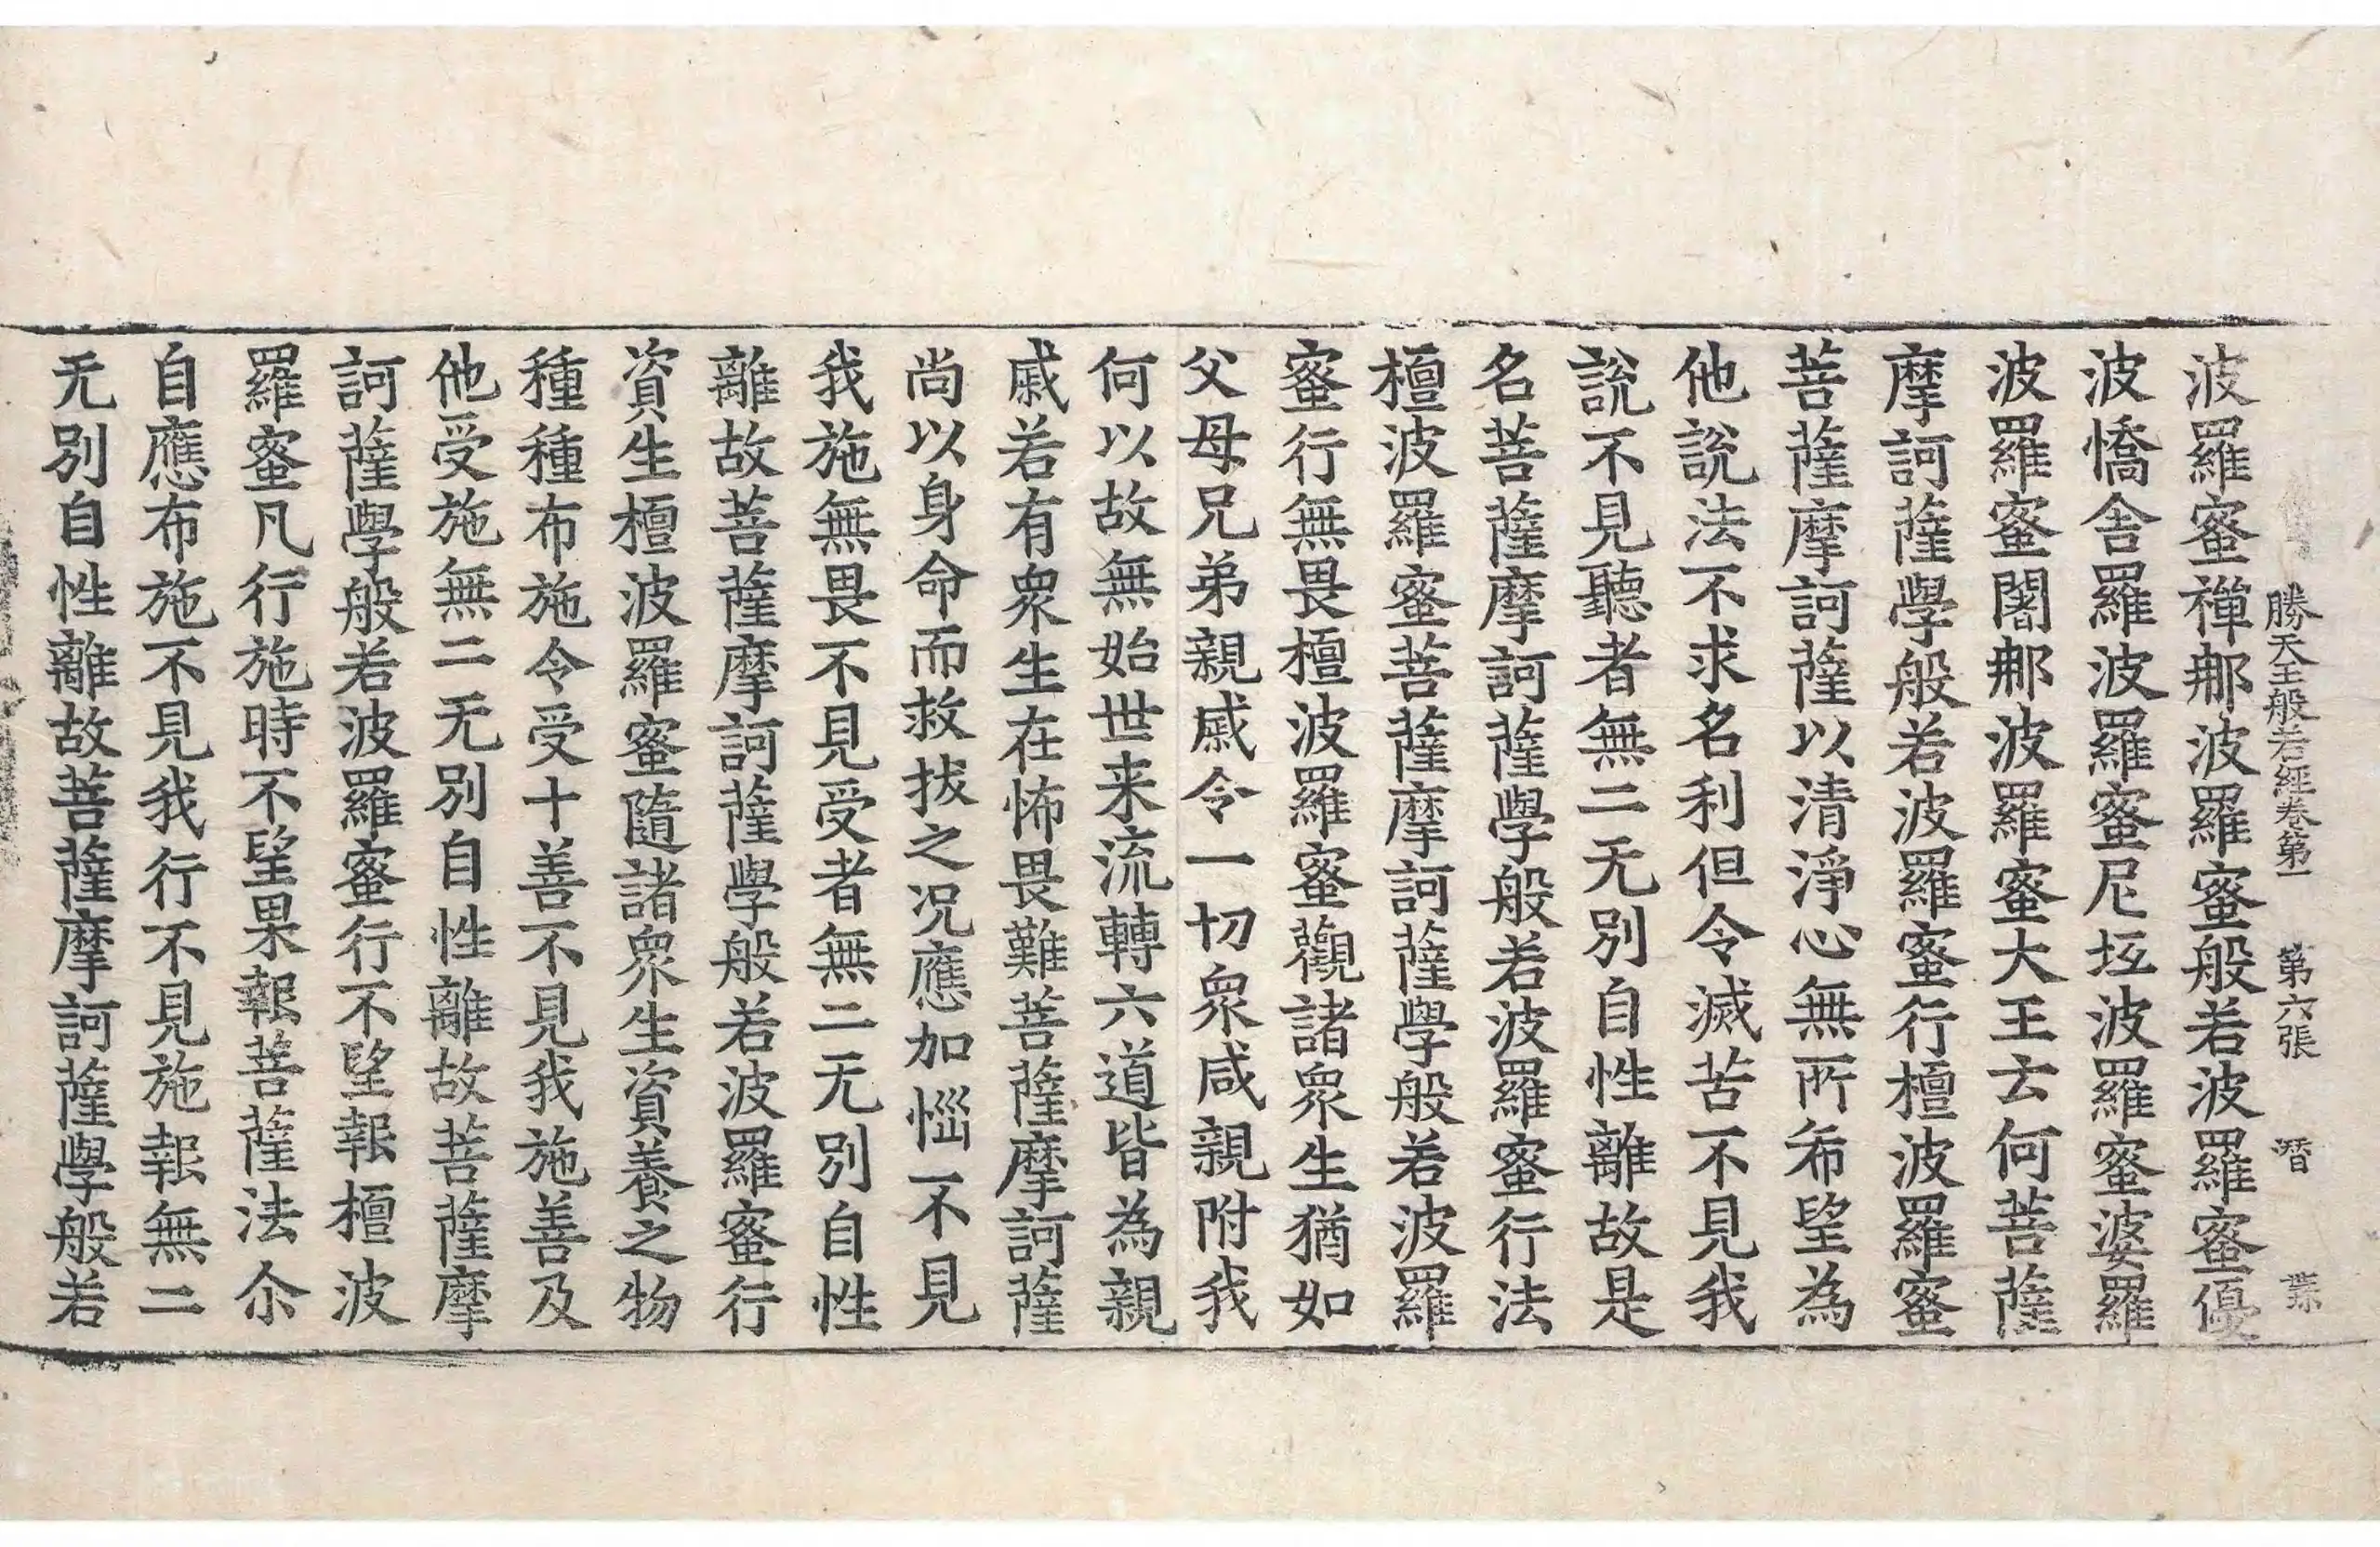 勝天王般若經卷第一 第六張 㬱
波羅蜜禪那波羅蜜般若波羅蜜優
波憍舍羅波羅蜜尼坻波羅蜜婆羅
波羅蜜闍那波羅蜜大王云何菩薩
摩訶薩學般若波羅蜜行檀波羅蜜
菩薩摩訶薩以清淨心無所希望為
他說法不求名利但令滅苦不見我
說不見聽者無二无別自性離故是
名菩薩摩訶薩學般若波羅蜜行法
檀波羅蜜菩薩摩訶薩學般若波羅
蜜行無畏檀波羅蜜觀諸衆生猶如
父母兄弟親戚令一切衆咸親附我
何以故無始世来流轉六道皆為親
戚若有衆生在怖畏難菩薩摩訶薩
尚以身命而救拔之况應加惱不見
我施無畏不見受者無二无別自性
離故菩薩摩訶薩學般若波羅蜜行
資生檀波羅蜜隨諸衆生資養之物
種種布施令受十善不見我施善及
他受施無二无別自性離故菩薩摩
訶薩學般若波羅蜜行不望報檀波
羅蜜凡行施時不望果報菩薩法尒
自應布施不見我行不見施報無二
无別自性離故菩薩摩訶薩學般若